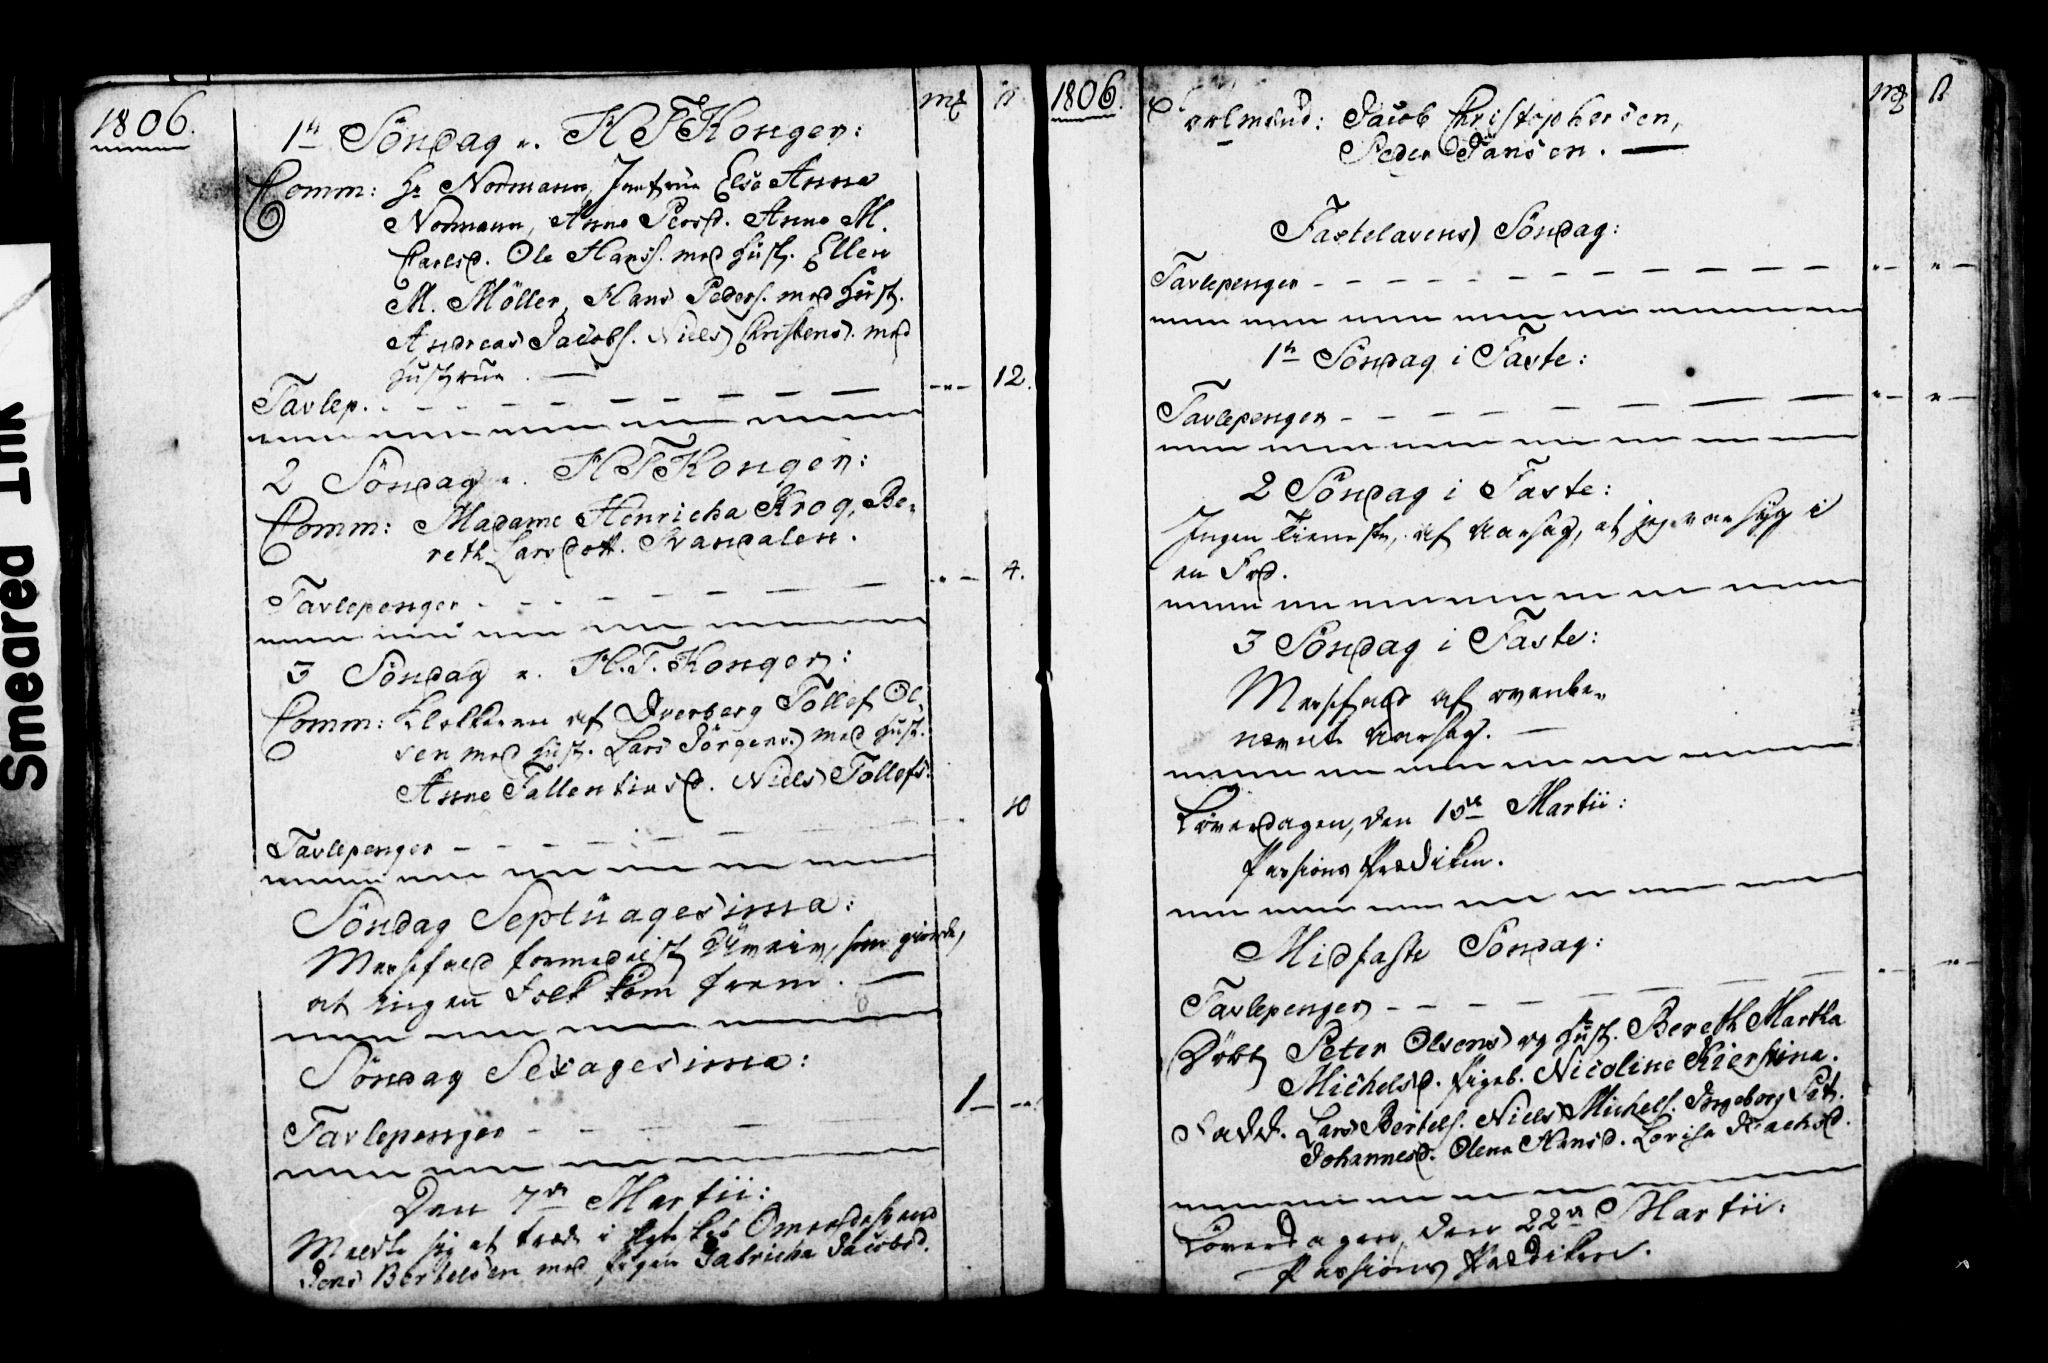 Smeared Ink
1806.
mk ß
1te Söndag e. H T Konger:
Comm: Hr Normann, Jomfrue Else Anna
Normann, Anne Persd. Anne M.
Carlsd. Ole Hanss. med Hust. Ellen
M. Möller, Hans Peders. med Hust.
Andreas Jacobs. Niels Christens. med
Hustrue. —
Tavlep. - - - - - - - - „ - 12.
2 Söndag e. H T Konger:
Comm: Madame Henricha Krog, Be-
reth Larsdott.
Tavlepenger - - - - - - - „ - 4.
3 Söndag e. H. T. Konger:
Comm: Klokkeren af Dverberg Tollef Ol-
sen med Hust. Lars Jörgens. med Hust.
Anne Fallentinsd. Niels Tollefs.
Tavlepenger - - - - - - - 10
Söndag Septuagesima:
Messefald formedelst Uveir, som giorde,
at ingen Folk kom frem. —
Söndag Sexagesima:
Tavlepenger - - - - - 1 - „
Den 7de Martii:
Meldte sig at træde i Ægteskab
Jens Bertelsen med Pigen Jabricha Jacobsd.
1806.
mk ß
Forlovmænd: Jacob Christophersen,
Peder Jansen. —
Fastelavens Söndag:
Tavlepenger - - - - - - - - „ - „ -
1te Söndag i Faste:
Tavlepenger - - - - - - - „ - „ -
2 Söndag i Faste:
Ingen Tieneste, af Aarsag, at jeg var syg i
en Fod.
3 Söndag i Faste:
Messefald af ovenbe-
nævnte Aarsag. —
Löverdagen, den 15de Martii:
Passions Prædiken.
Midfaste Söndag:
Tavlepenger - - - - - - - „ - „ -
Döbt Peter Olsens og Hust. Bereth Martha
Michelsd. Pigeb. Nicoline Kierstina.
Fadd. Lars Bertels. Niels Michels. Ingeborg Pet.
Johannesd. Olena Hansd. Lovisa
Löverdagen, den 22de Martii:
Passions Prædiken.